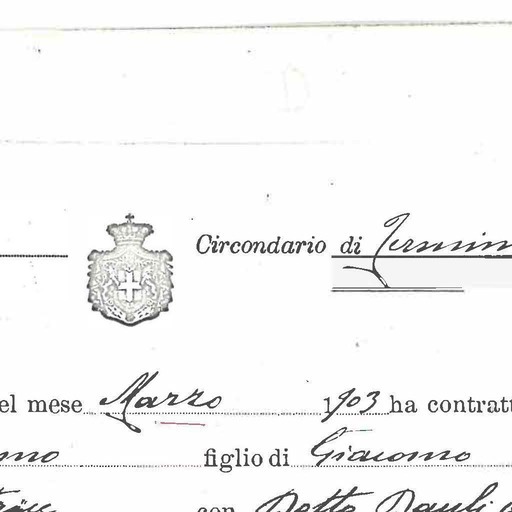 Circondario di Termin
el mese Marzo 1903 ha contratt
figlio di Giacomo
con